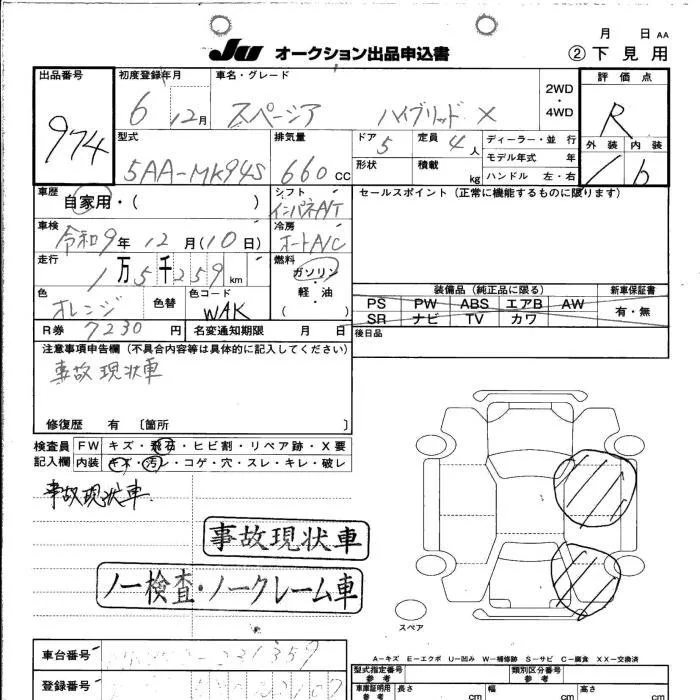 JU オークション出品申込書
月 日 AA
② 下見用
出品番号 974
初度登録年月 6 12月
車名・グレード スペーシア ハイブリッド X
2WD ・ 4WD
評価点 R
型式 5AA-MK94S
排気量 660 cc
ドア 5
形状
定員 4人
積載 kg
ディーラー・並行
モデル年式 年
ハンドル 左・右
外装 内装
車歴 自家用・( )
シフト インパネA/T
セールスポイント (正常に機能するものに限ります)
車検 令和9年12月(10日)
冷房 オートA/C
走行 1万5千259km
燃料 ガソリン・軽・油 ( )
色 オレンジ 色替
色コード WAK
装備品 (純正品に限る)
新車保証書
PS PW ABS エアB AW
SR ナビ TV カワ
有・無
R券 7230 円
名変通知期限 月 日
後日品
注意事項申告欄 (不具合内容等は具体的に記入してください)
事故現状車
修復歴 有 〔箇所 〕
検査員 FW キズ・飛石・ヒビ割・リペア跡・X要
記入欄 内装 キズ・汚レ・コゲ・穴・スレ・キレ・破レ
事故現状車
事故現状車
ノー検査・ノークレーム車
スペア
車台番号
A-キズ E-エクボ U-凹み W-補修跡 S-サビ C-腐食 XX-交換済
型式指定番号 参考
類別区分番号 参考
登録番号
車庫証明用 参考
長さ cm
幅 cm
高さ cm